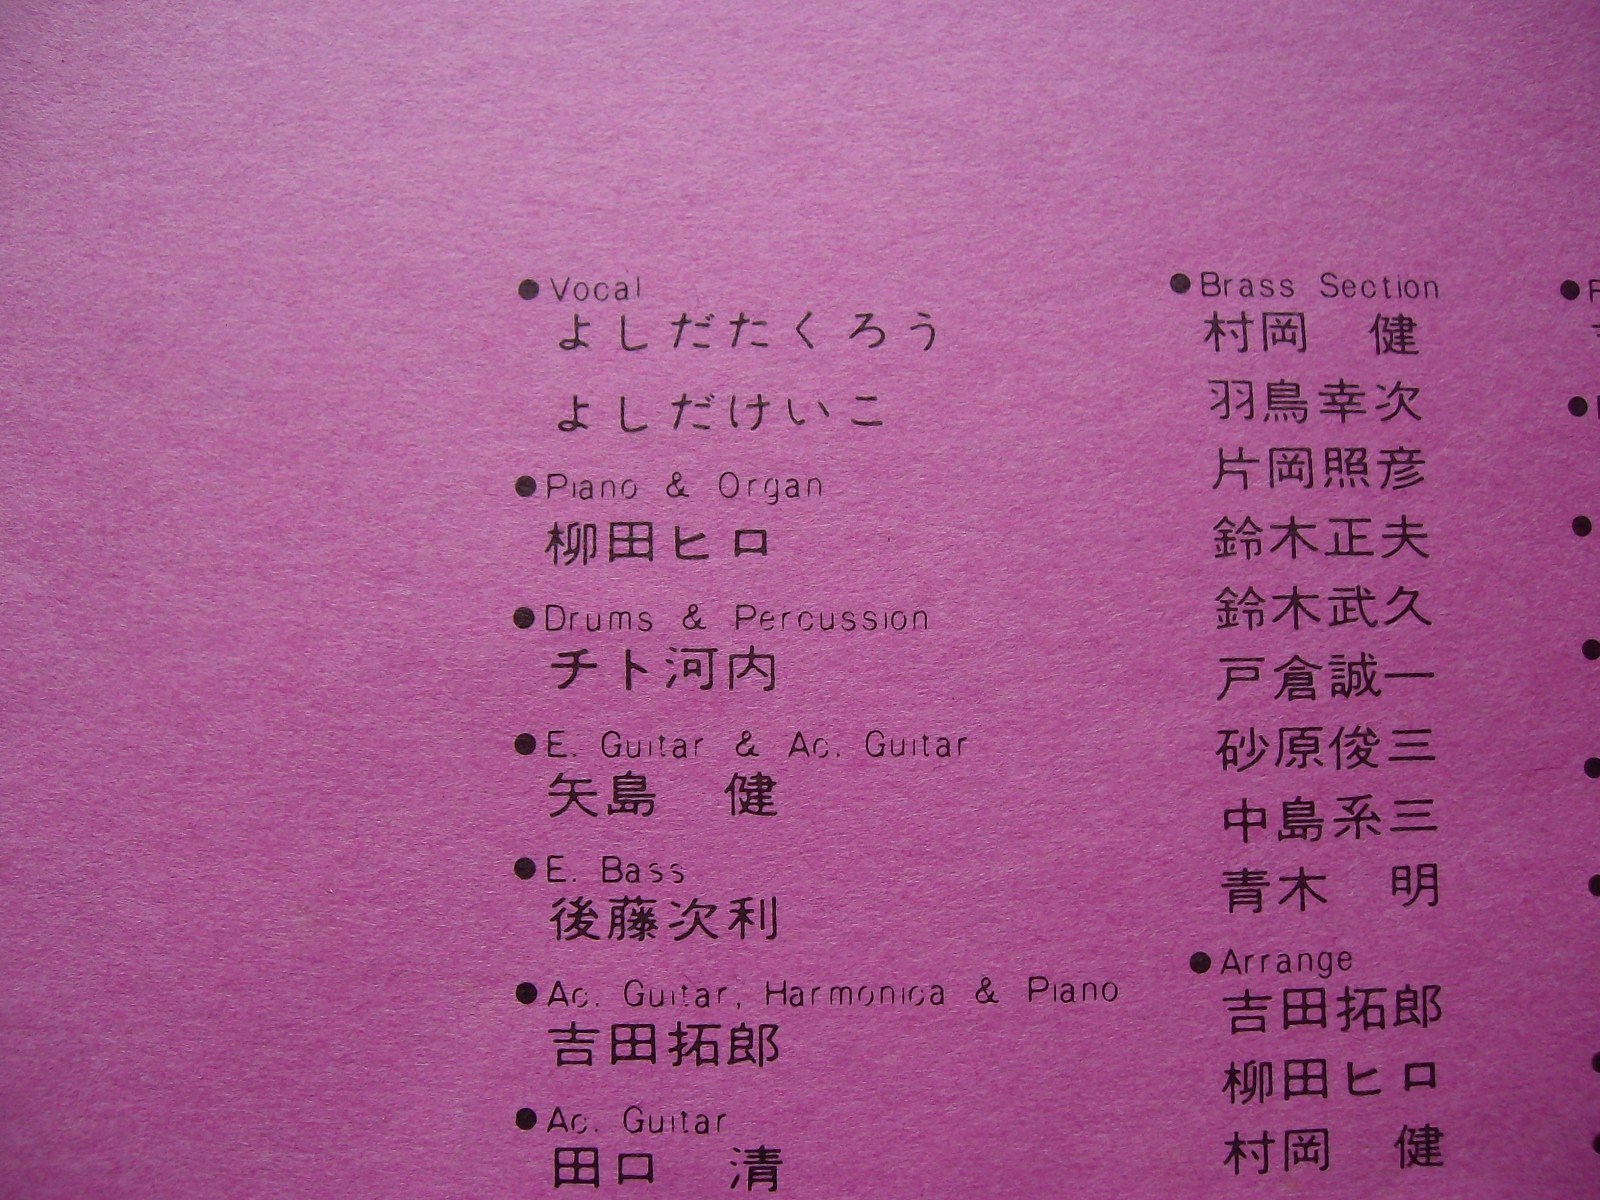 ●Vocal
よしだたくろう
よしだけいこ
●Piano & Organ
柳田ヒロ
●Drums & Percussion
チト河内
●E. Guitar & Ac. Guitar
矢島　健
●E. Bass
後藤次利
●Ac. Guitar, Harmonica & Piano
吉田拓郎
●Ac. Guitar
田口　清
●Brass Section
村岡　健
羽鳥幸次
片岡照彦
鈴木正夫
鈴木武久
戸倉誠一
砂原俊三
中島系三
青木　明
●Arrange
吉田拓郎
柳田ヒロ
村岡　健